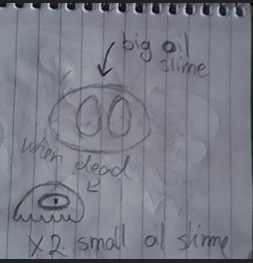 big oil
slime
when dead
x2 small oil slime